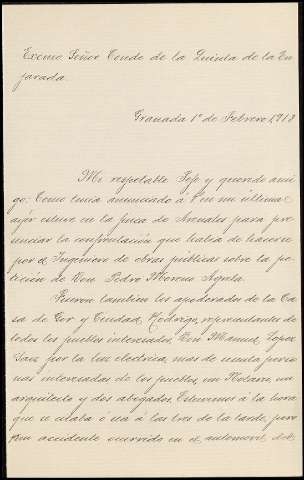 Excmo. Señor Conde de la Quinta de la En
jarada.
Granada 1º de Febrero 1,913
Mi respetable Jefe y querido ami
go: Como tenia anunciado á V en mi última,
ayer estuve en la finca de Arenales para pre
senciar la confrontación que habia de hacerse
por el Ingeniero de obras públicas sobre la pe
tición de Don Pedro Moreno Agrela.
Fueron tambien los apoderados de la Ca
sa de Gor y Ciudad Rodrigo, representantes de
todos los pueblos interesados, Don Manuel Lopez
Saez por la luz electrica, mas de treinta perso
nas interesadas de los pueblos, un Notario, un
arquitecto y dos abogados. Estuvimos á la hora
que se citaba ó sea á las tres de la tarde, pero
un accidente ocurrido en el automóvil, del